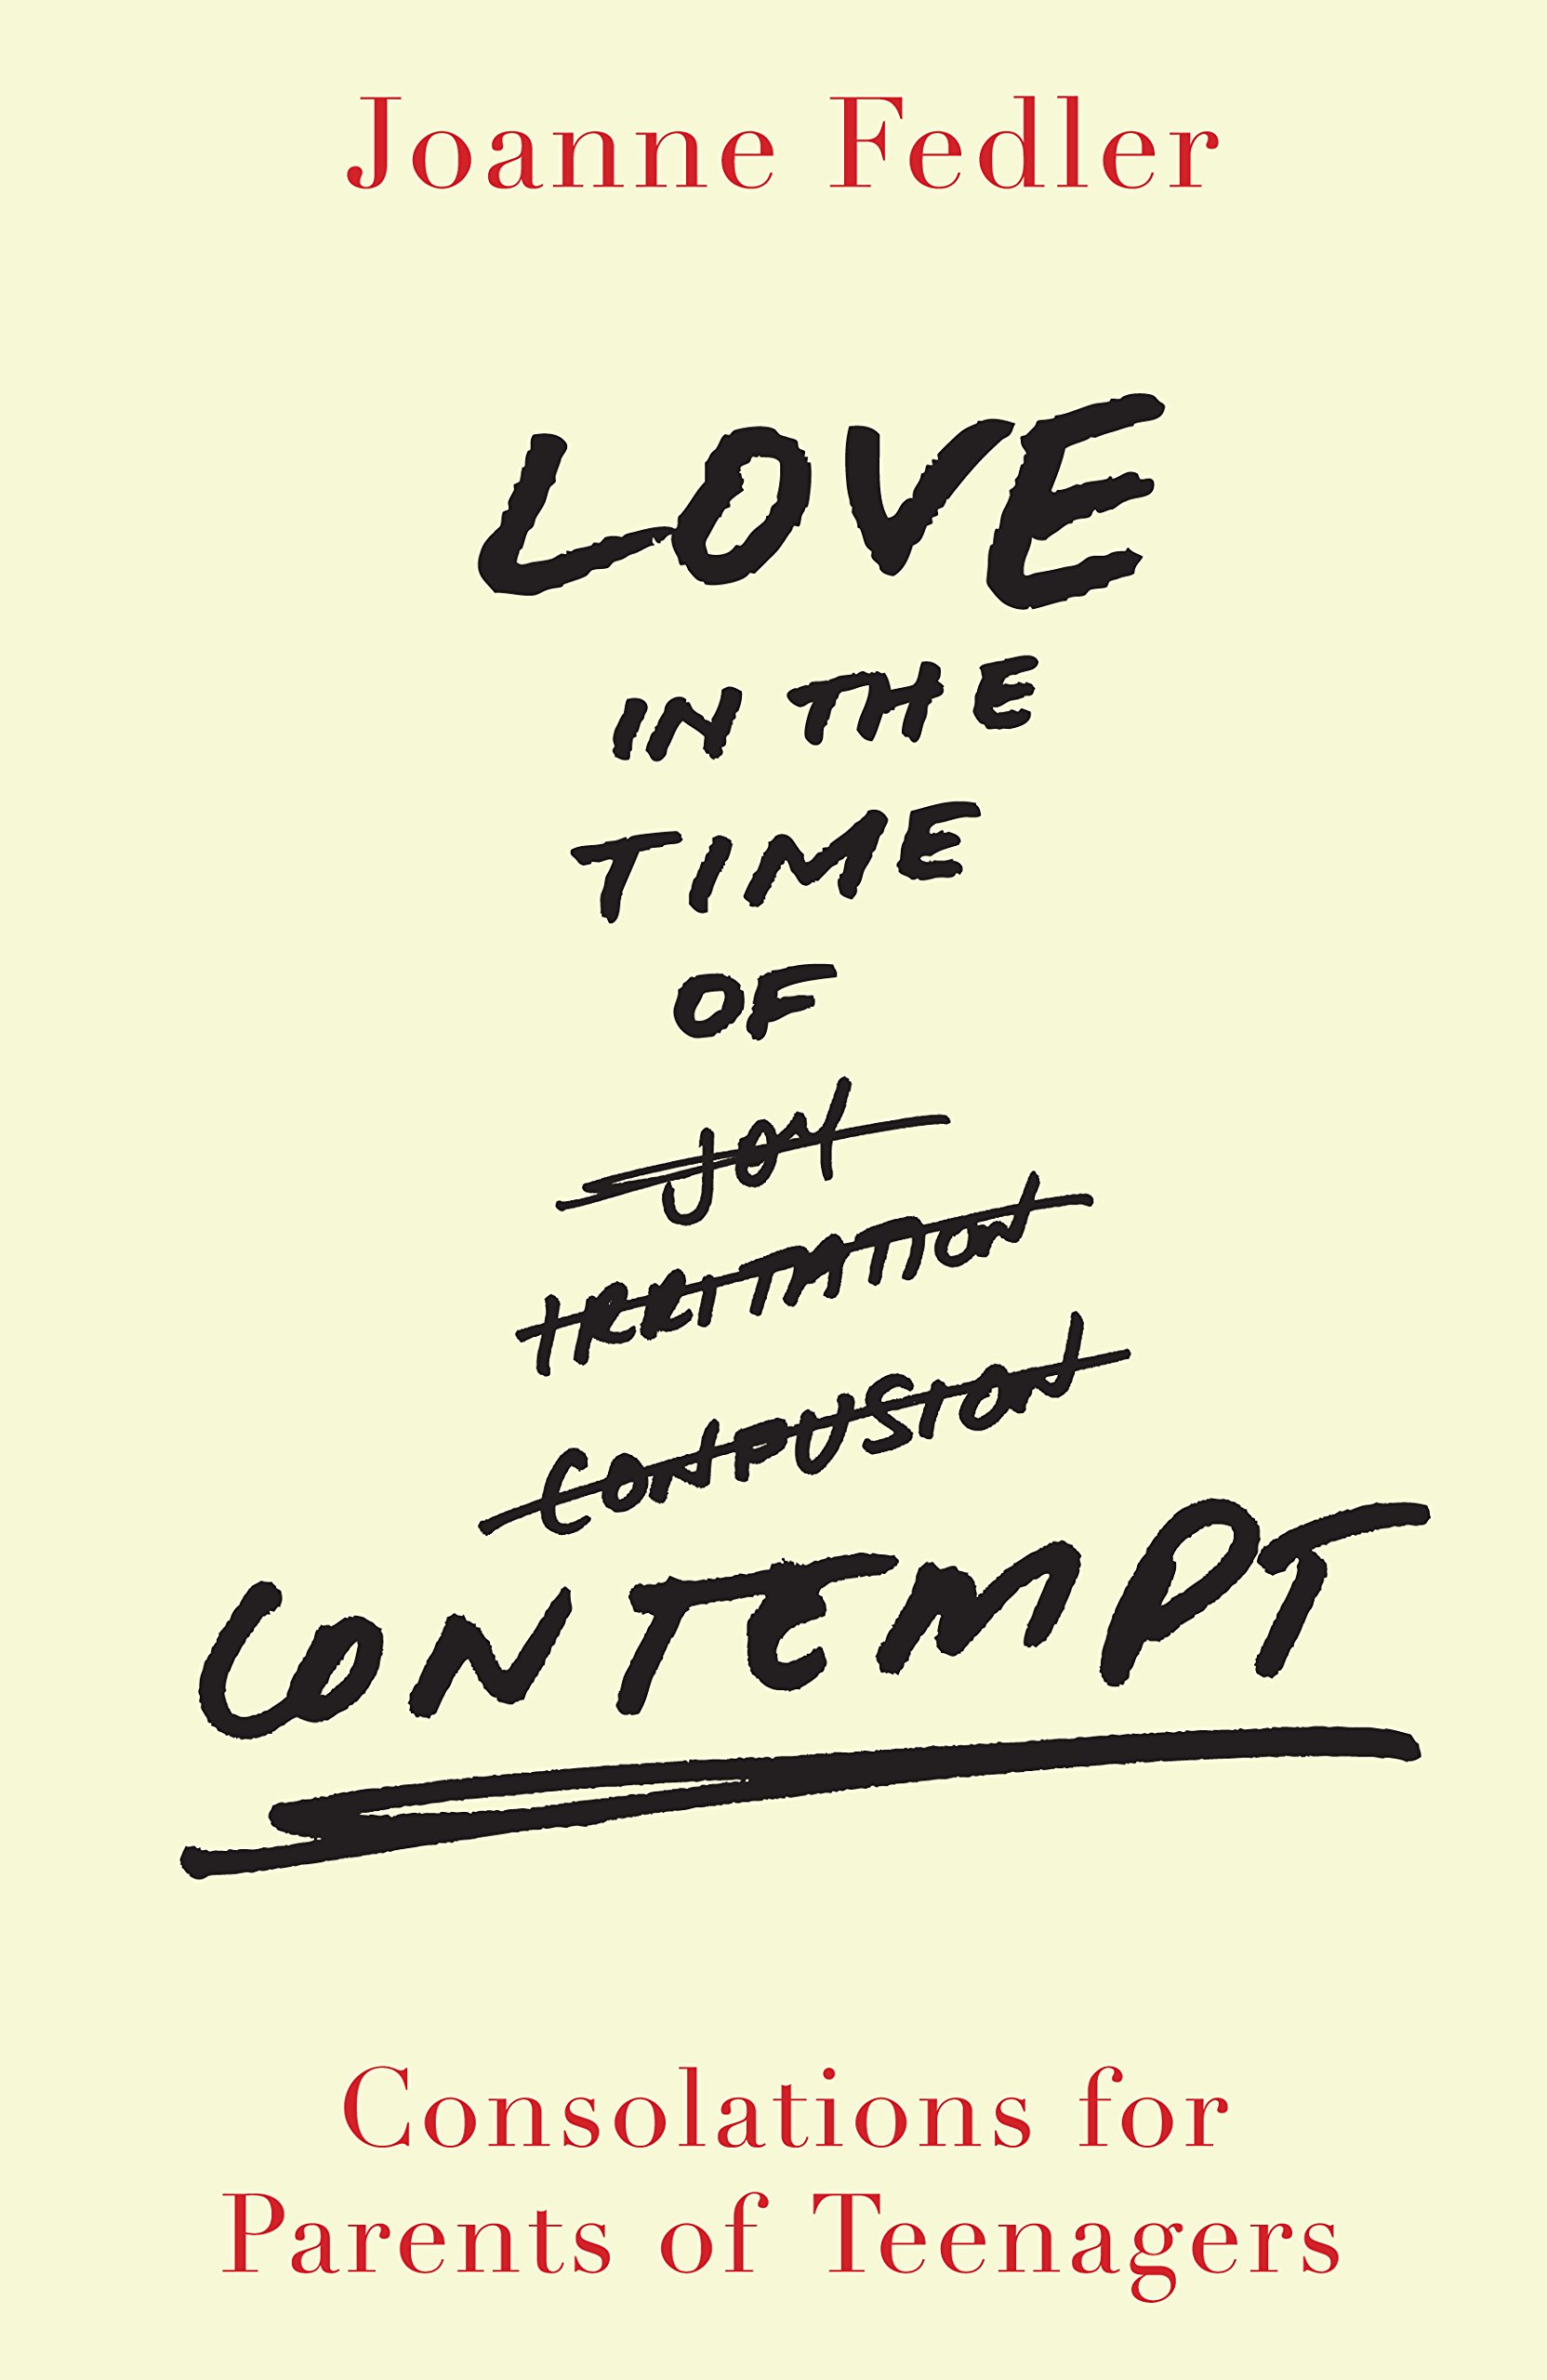 Joanne Fedler
LOVE
IN THE
TIME
OF
JOY
IRRITATION
CONFUSION
CONTEMPT
Consolations for
Parents of Teenagers